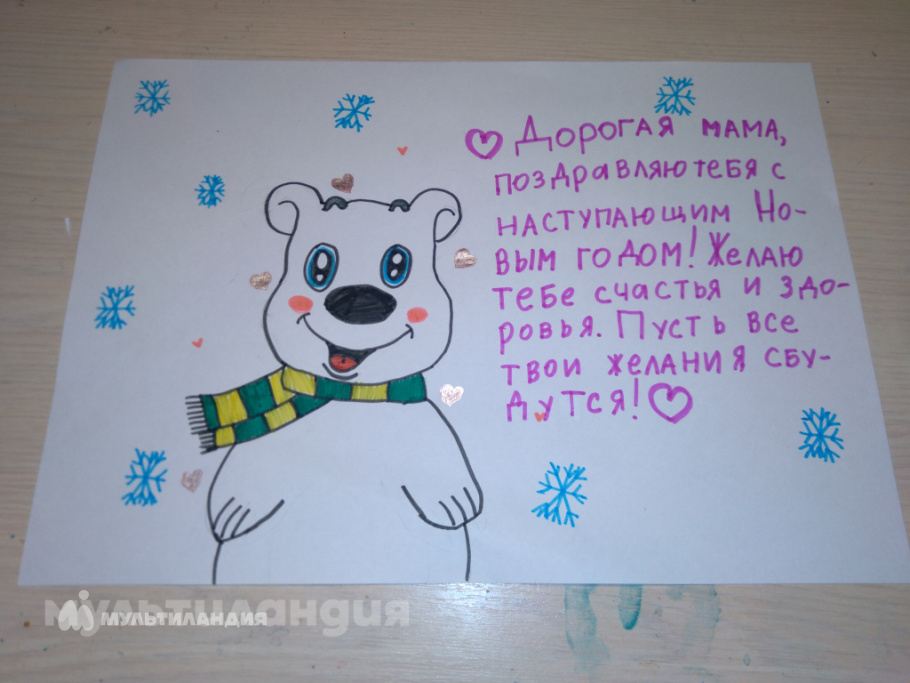 Дорогая мама,
поздравляю тебя с
наступающим Но-
вым годом! Желаю
тебе счастья и здо-
ровья. Пусть все
твои желания сбу-
дутся!
мультиландия
МУЛЬТИЛАНДИЯ